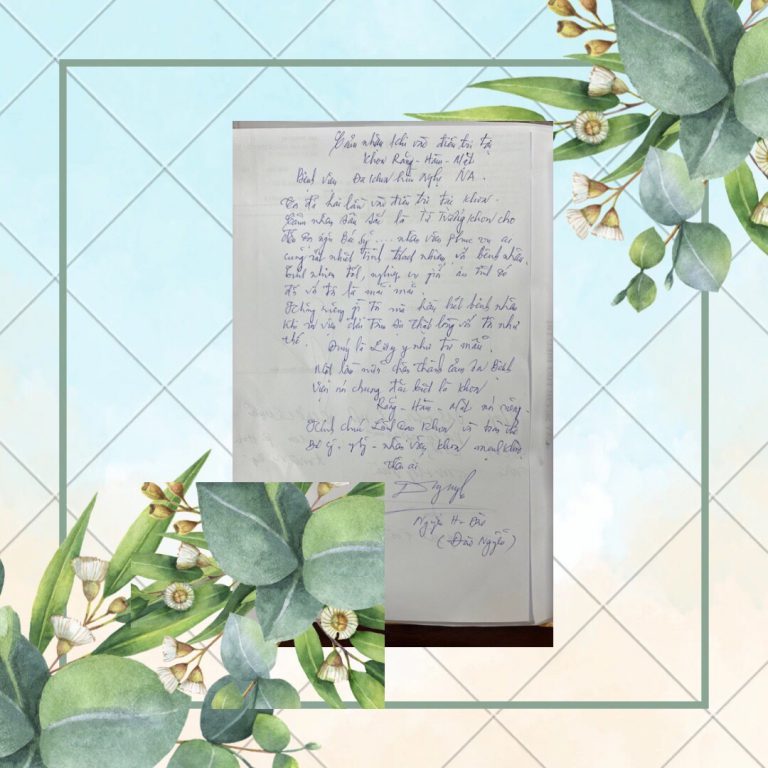 Cảm nhận khi vào điều trị tại
Khoa Răng - Hàm - Mặt
Bệnh viện Đa khoa hữu nghị NA.
Tôi đã hai lần vào điều trị tại khoa.
Cảm nhận sâu sắc là từ Trưởng khoa cho
Bác sỹ .... nhân viên phục vụ ai
cũng rất nhiệt tình trách nhiệm với bệnh nhân.
nghiệp vụ giỏi ấn
đối với tôi là mãi mãi.
Không riêng gì tôi mà hầu hết bệnh nhân
khi ra viện đều thật lòng với tôi như
thế. Đúng là Lương y như từ mẫu.
Một lần nữa chân thành cảm ơn Bệnh
viện nói chung đặc biệt là khoa
Răng - Hàm - Mặt nói riêng.
Kính chúc Lãnh đạo khoa và toàn thể
Bác sỹ, y tá - nhân viên khoa mạnh khỏe
thân ái
Nguyễn H-
(Đào Nguyễn)